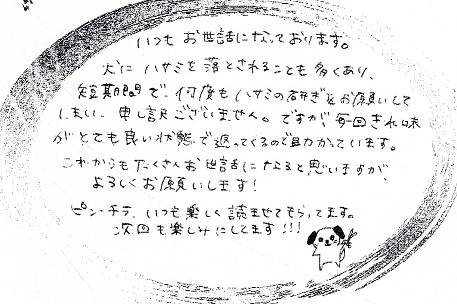 いつもお世話になっております。
犬にハサミを落とされることも多くあり、
短期間で何度もハサミの研ぎをお願いして
しまい、申し訳ございません。ですが毎回きれ味
がとても良い状態で返ってくるので助かっています。
これからもたくさんお世話になると思いますが、
よろしくお願いします!
ピン・チラ、いつも楽しく読ませてもらってます。
次回も楽しみにしてます!!!